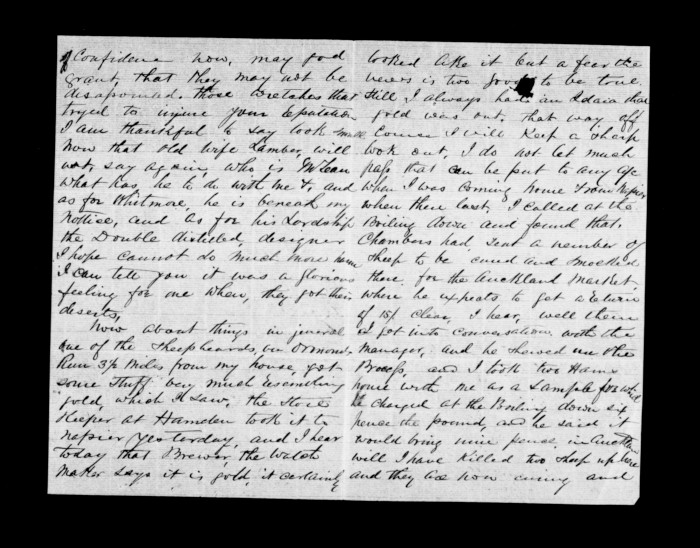 of Confidence now, may god
grant, that they may not be
disapointed. those wretches that
tryed to injure your Repotation
I am thankful to say look small
now that old wife Lambert, will
not, say again, who is McLean
what has, he to do with me &, and
as for Whitmore, he is beneath my
nottice, and as for his Lordship
the Double distilled, designer
I hope cannot do much more harm
I can tell you it was a glorious
feeling for me when, they got their
deserts,
Now about things in jeneral
one of the Sheepheards, on Ormonds
Run 3½ miles from my house, got
some stuff very much resembling
gold, which I saw, the Store
Keeper at Hamden took it to
napier yesterday, and I hear
today that Brewer, the Watch
maker says it is gold, it certainly
looked like it but a fear the
news is two good to be true,
still I always had an Idaia that
gold was out, that way off
Course I will Keep a sharp
look out, I do not let much
pass that can be put to any use
when I was coming home from Napier
when there last, I called at the
Boiling down and found that
Chambers had, sent a number of
sheep to be cured and smocked
there, for the Auckland Market
where he expeats to get a return
of 15/ clear, I hear, well there
I got into Conversation, with the
manager, and he shewed me the
Process, and I took two Hams
home with me as a Sample for which
he charged at the Boiling down six
pence the pound, and he said it
would bring nine pence, in Auckland
well I have killed two sheep up here
and they are now curing and